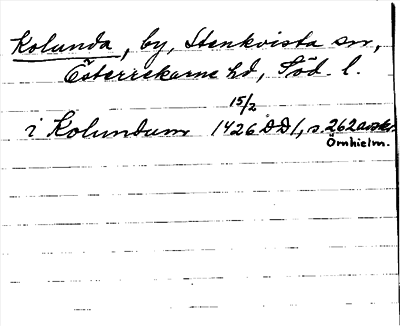 Kolunda, by, Stenkvista sn,
Österrekarne hd, Söd. l.
15/2
i Kolundum 1426 DD1, s. 262 avskr.
Örnhielm.